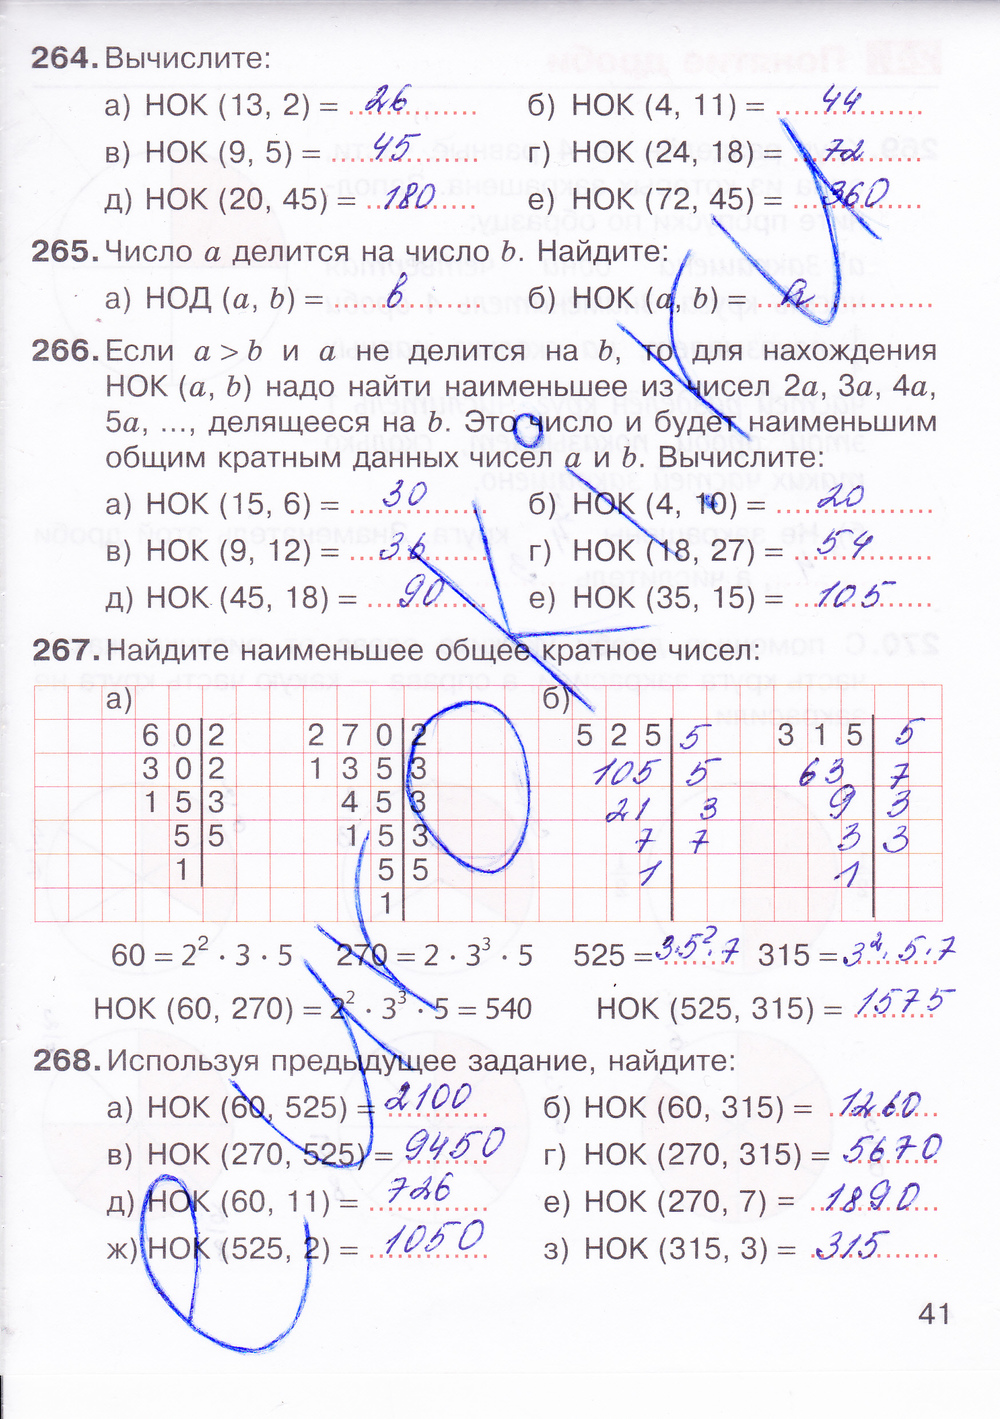 264. Вычислите:
а) НОК (13, 2) = 26 б) НОК (4, 11) = 44
в) НОК (9, 5) = 45 г) НОК (24, 18) = 72
д) НОК (20, 45) = 180 е) НОК (72, 45) = 360
265. Число a делится на число b. Найдите:
а) НОД (a, b) = в б) НОК (a, b) = а
266. Если a > b и a не делится на b, то для нахождения
НОК (a, b) надо найти наименьшее из чисел 2a, 3a, 4a,
5a, ..., делящееся на b. Это число и будет наименьшим
общим кратным данных чисел a и b. Вычислите:
а) НОК (15, 6) = 30 б) НОК (4, 10) = 20
в) НОК (9, 12) = 36 г) НОК (18, 27) = 54
д) НОК (45, 18) = 90 е) НОК (35, 15) = 105
267. Найдите наименьшее общее кратное чисел:
а) б)
60 2 270 2 525 5 315 5
30 2 135 3 105 5 63 7
15 3 45 3 21 3 9 3
5 5 15 3 7 7 3 3
1 5 5 1 1
1
60 = 2² · 3 · 5 270 = 2 · 3³ · 5 525 = 3·5²·7 315 = 3²·5·7
НОК (60, 270) = 2² · 3³ · 5 = 540 НОК (525, 315) = 1575
268. Используя предыдущее задание, найдите:
а) НОК (60, 525) = 2100 б) НОК (60, 315) = 1260
в) НОК (270, 525) = 9450 г) НОК (270, 315) = 5670
д) НОК (60, 11) = 726 е) НОК (270, 7) = 1890
ж) НОК (525, 2) = 1050 з) НОК (315, 3) = 315
41